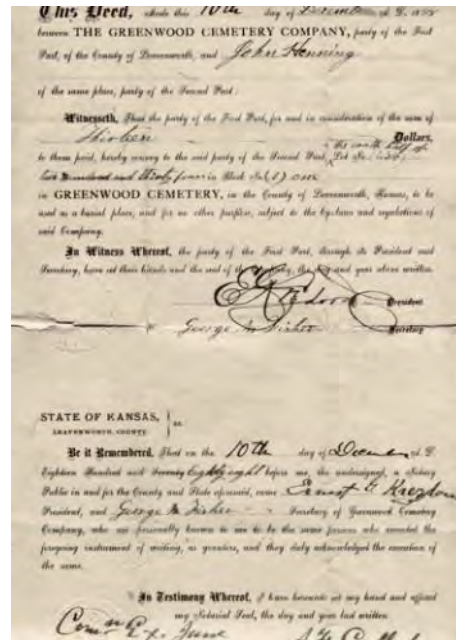 This Deed, made this 10th day of December A. D. 1888
between THE GREENWOOD CEMETERY COMPANY, party of the First
Part, of the County of Leavenworth, and John Henning
of the same place, party of the Second Part:
Witnesseth, That the party of the First Part, for and in consideration of the sum of
Thirteen Dollars,
the south half of
to them paid, hereby convey to the said party of the Second Part, Lot No.
two hundred and thirty four in Block No. (1) one
in GREENWOOD CEMETERY, in the County of Leavenworth, Kansas, to be
used as a burial place, and for no other purpose, subject to the by-laws and regulations of
said Company.
In Witness Whereof, the party of the First Part, through its President and
Secretary, have set their hands and the seal of the Company, the day and year above written.
President
George M Fisher Secretary
STATE OF KANSAS, } ss.
LEAVENWORTH COUNTY
Be it Remembered, That on the 10th day of Decem A. D.
Eighteen Hundred and Seventy Eighty eight before me, the undersigned, a Notary
Public in and for the County and State aforesaid, came Ernest
President, and George M Fisher Secretary of Greenwood Cemetery
Company, who are personally known to me to be the same persons who executed the
foregoing instrument of writing, as grantors, and they duly acknowledged the execution of
the same.
In Testimony Whereof, I have hereunto set my hand and affixed
my Notarial Seal, the day and year last written.
Com Ex. June